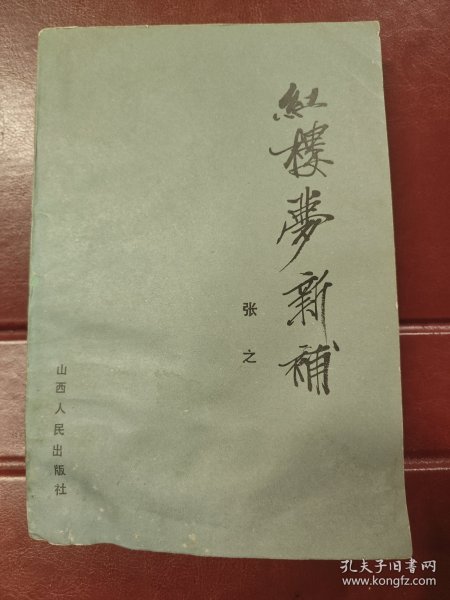 紅樓夢新補
张之
山西人民出版社
孔夫子旧书网
www.kongfz.com